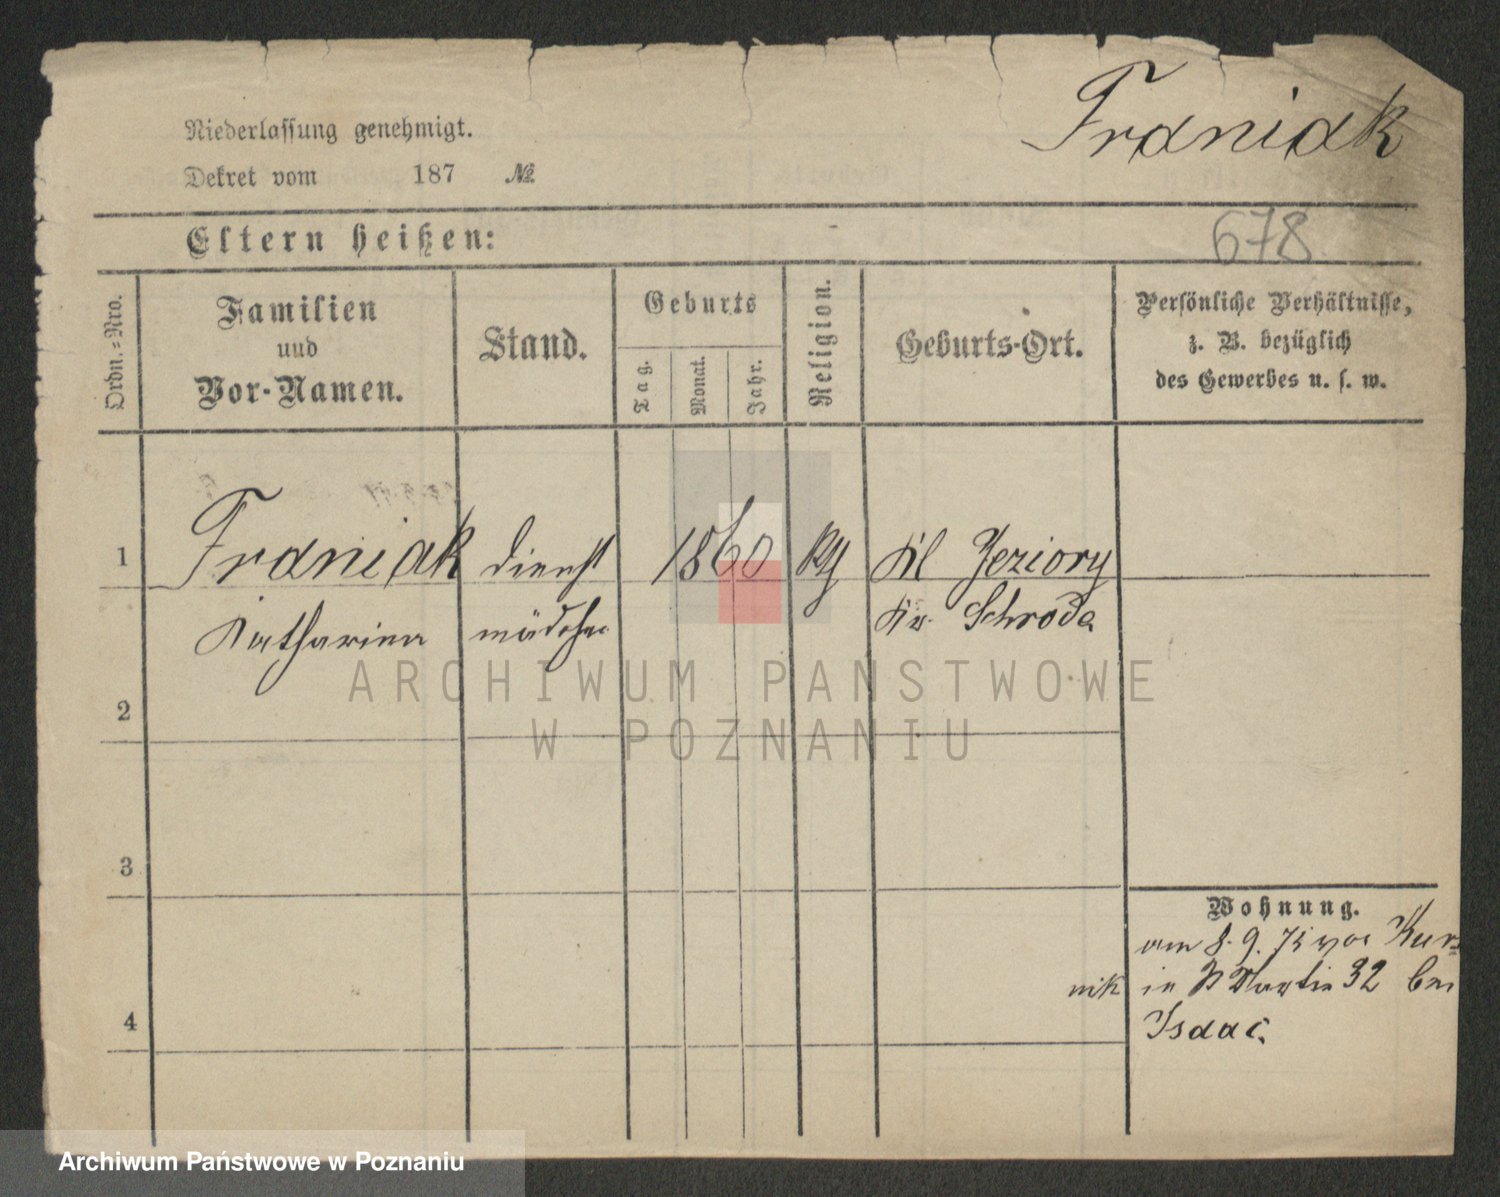 Franiak
Niederlassung genehmigt.
Dekret vom 187 №
678
Eltern heißen:
Ordn.=Nro.
Familien
und
Vor-Namen.
Stand.
Geburts
Tag.
Monat.
Jahr.
Religion.
Geburts-Ort.
Persönliche Verhältnisse,
z. B. bezüglich
des Gewerbes u. s. w.
1 Franiak dienst 1860 Kl Jeziory
Katharina mädchen Kr. Schroda
2
3
4
Wohnung.
am 8. 9. 75 von Kur
nik in Martin 32 bei
Isaac.
ARCHIWUM PAŃSTWOWE
W POZNANIU
Archiwum Państwowe w Poznaniu